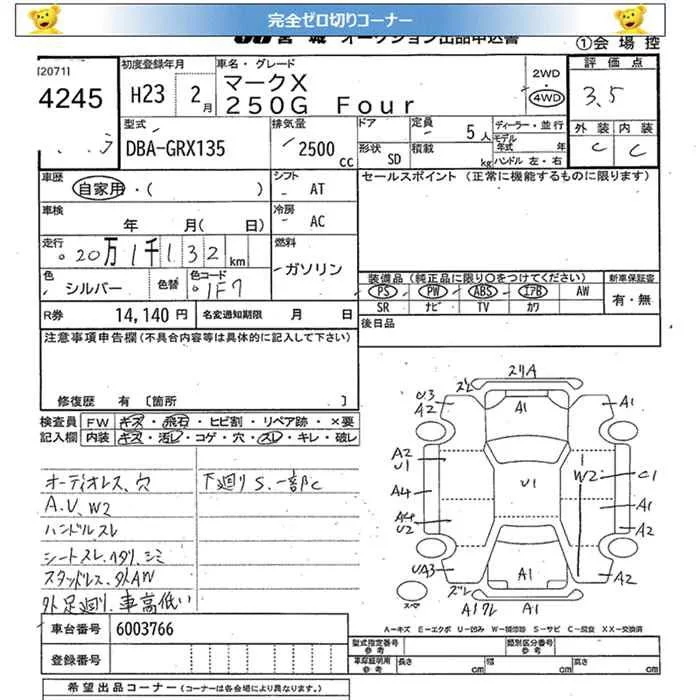 完全ゼロ切りコーナー
JU 宮城 オークション出品申込書
①会場控
[2071]
4245
初度登録年月
H23 2月
車名・グレード
マークX
250G Four
2WD
4WD
評価点
3.5
外装 内装
C C
型式
DBA-GRX135
排気量
2500cc
ドア
形状 SD
定員 5人
積載 kg
ディーラー・並行
モデル年式 年
ハンドル 左・右
車歴
自家用・( )
シフト
AT
セールスポイント (正常に機能するものに限ります)
車検
年 月( 日)
冷房
AC
走行
20万1千132km
燃料
ガソリン
色
シルバー
色替
色コード
1F7
装備品 (純正品に限り○をつけてください)
新車保証書
PS PW ABS エアB AW
SR ナビ TV カワ
有・無
R券 14,140円
名変通知期限 月 日
後日品
注意事項申告欄(不具合内容等は具体的に記入して下さい)
修復歴 有 〔箇所 〕
検査員記入欄
FW キズ・飛石・ヒビ割・リペア跡・×要
内装 キズ・汚レ・コゲ・穴・スレ・キレ・破レ
オーディオレス、穴
下廻りS.一部C
A.U.W2
ハンドルスレ
シートスレ、ヘタリ、シミ
スタッドレス、外AW
外足廻り、車高低い
スリA
ズレ
U3
A2
A1
A1
A2
U1
A4
A4
U2
UA3
U1
W2
C1
A1
A2
A2
A1
ズレ
A1ワレ
A1
スペア
A-キズ E-エクボ U-凹み W-補修跡 S-サビ C-腐食 XX-交換済
車台番号 6003766
登録番号
型式指定番号 参考
類別区分番号 参考
車庫証明用 参考
長さ cm 幅 cm 高さ cm
希望出品コーナー (コーナーは各会場により異なります。)